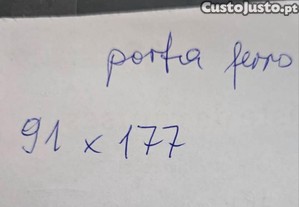 CustoJusto.pt
porta ferro
91 x 177